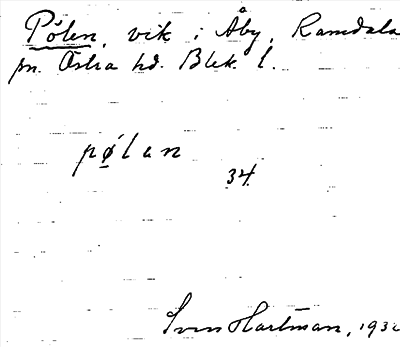 Pølen, vik i Åby, Ramdala
pn. Östra hd. Blek. l.
pølan
34.
Sven Hartman, 193